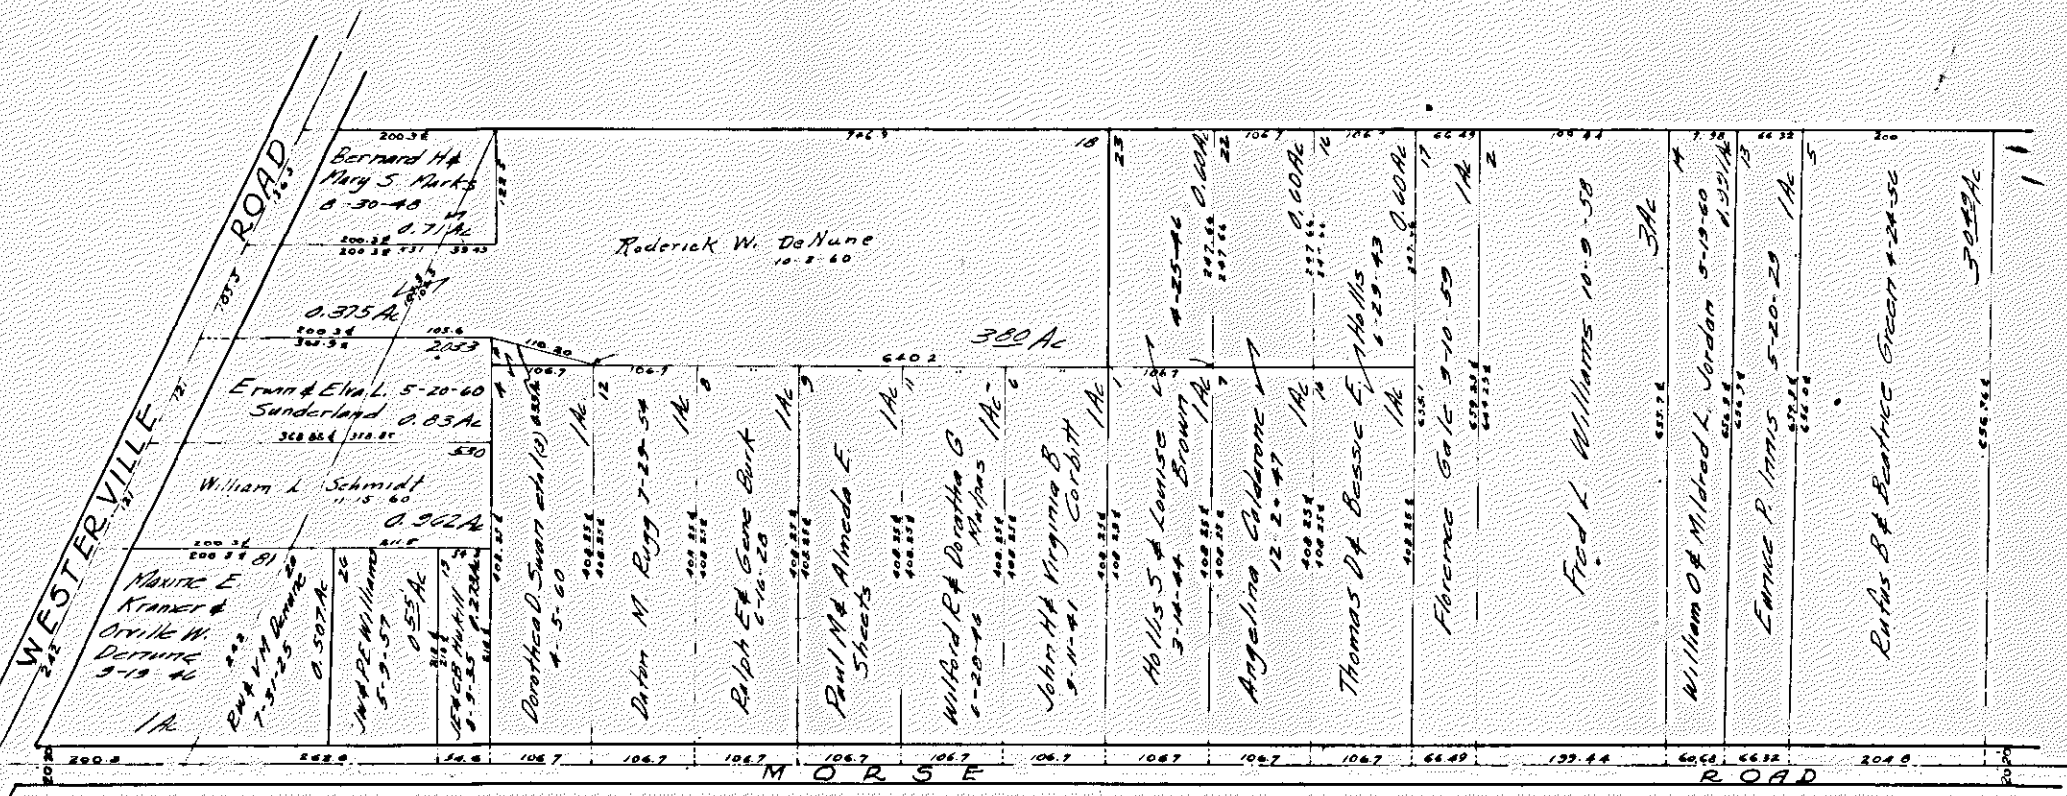 WESTERVILLE ROAD
200.3¢
Bernard H &
Mary S. Marks
8-30-48
0.71 Ac
200.3¢
39.43
0.375 Ac
105.6
Roderick W. DeNune
10-8-60
380 Ac
746.9
18
640.2
110.20
Erwin & Elva L. 5-20-60
Sunderland
0.83 Ac
2033
William L Schmidt
11-15-60
0.962 Ac
550
Maxine E
Kramer &
Orville W.
Denune
9-19-46
1 Ac
RW & VM Denune
7-31-25
0.507 Ac
JW & PE Williams
5-9-57
0.55 Ac
JE & GB Hukill
8-9-35
Dorothea D. Swan etal(3)
4-5-60
1 Ac
12
Daton M Rugg 7-29-54
1 Ac
8
Ralph E & Gene Burk
6-16-28
1 Ac
9
Paul M & Almeda E
Sheets
1 Ac
11
Wilford R & Doratha G
Malpas
6-28-46
1 Ac
6
John H & Virginia B
Corbitt
9-11-41
1 Ac
1
Hollis S & Louise
Brown
3-14-44
1 Ac
7
4-25-46
0.60 Ac
23
22
Angelina Calderone
12-2-47
1 Ac
0.60 Ac
16
Thomas D & Bessie E Hollis
6-29-43
1 Ac
0.60 Ac
17
Florence Gale 9-10-59
1 Ac
2
Fred L Williams 10-9-58
3 Ac
14
William O & Mildred L. Jordan 5-19-60
13
Eunice P. Innis 5-20-29
1 Ac
5
Rufus B & Beatrice Green 4-24-56
3.049 Ac
106.7
66.49
199.44
7.98
66.32
200
408.25¢
247.66
655.1
659.25¢
655.7¢
656.9¢
656.56¢
200.3
262.6
54.6
106.7
106.7
106.7
106.7
106.7
106.7
106.7
106.7
106.7
66.49
199.44
60.68
66.32
204.8
20.20
MORSE ROAD